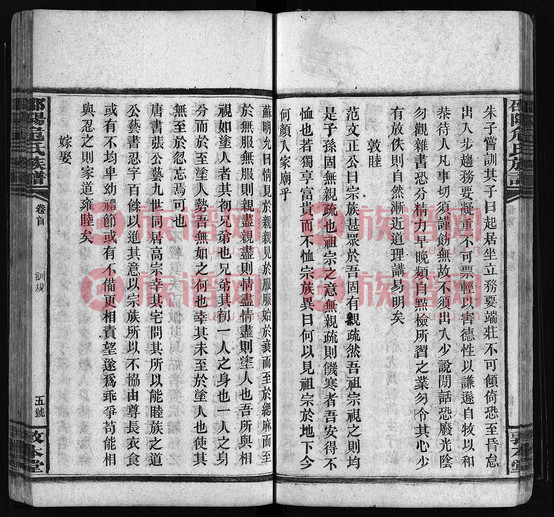 朱子嘗訓其子曰起居坐立務要端莊不可傾倚恐至昏怠
出入步趨務要凝重不可票輕以害德性以謙遜自牧以和
恭待人凡事切須謹飭無故不須出入少說閒話恐廢光陰
勿觀雜書恐分精力早晚頻自點檢所習之業勿令其心少
有放佚則自然漸近道理講易明矣
敦睦
范文正公曰宗族甚眾於吾固有親疏然吾祖宗視之則均
是子孫固無親疏也祖宗之意無親疏則饑寒者吾安得不
恤也若獨享富貴而不恤宗族異日何以見祖宗於地下今
何顏入家廟乎
蘇明允曰情見於親親見於服服始於衰而至於緦麻而至
於無服無服則親盡親盡則情盡情盡則塗人也吾所與相
視如塗人者其初兄弟也兄弟其初一人之身也一人之身
分而至於塗人勢吾無如之何也幸其未至於塗人也使其
無至於忽忘焉可也
唐書張公藝九世同居高宗幸其宅問其所以能睦族之道
公藝書忍字百餘以進其意以宗族所以不協由尊長衣食
或有不均卑幼禮節或有不備更相責望遂為乖爭苟能相
與忍之則家道雍睦矣
嫁娶
邵陽危氏族譜
卷首
訓規
五號
敦本堂
邵陽危氏族譜
敦本堂
族譜网